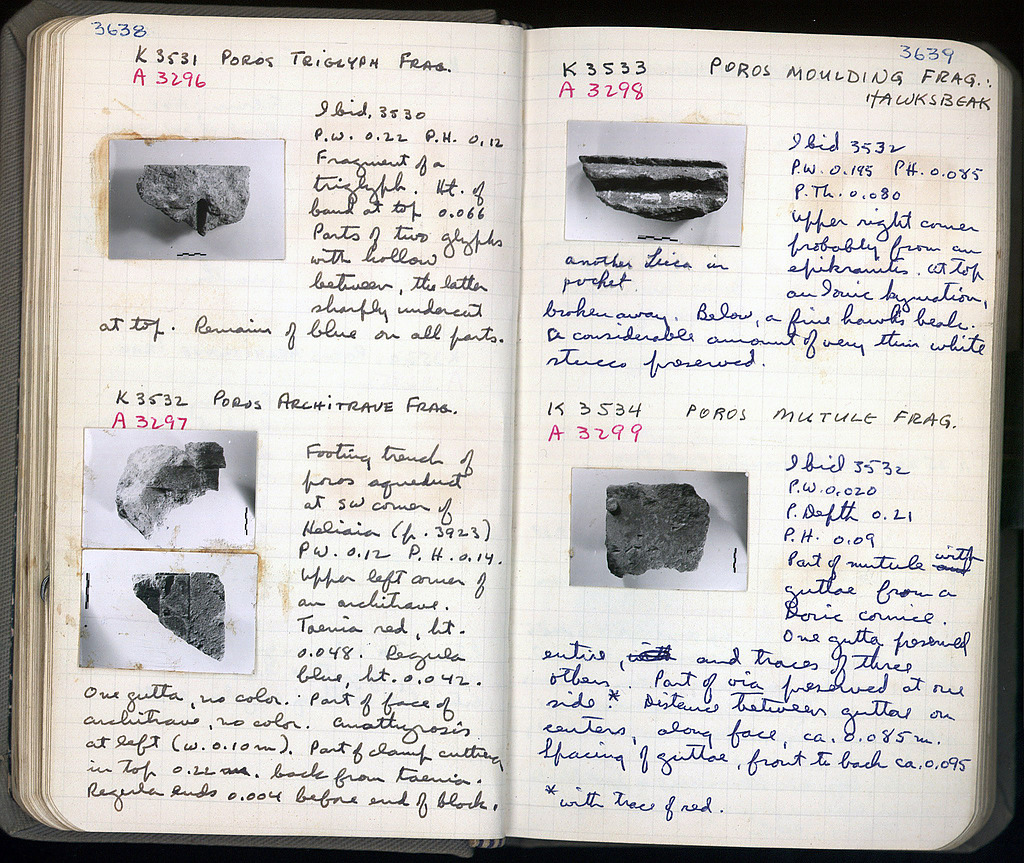 3638
K 3531 POROS TRIGLYPH FRAG.
A 3296
Ibid. 3530
P.W. 0.22 P.H. 0.12
Fragment of a
triglyph. Ht. of
band at top 0.066
Parts of two glyphs
with hollow
between, the latter
sharply undercut
at top. Remains of blue on all parts.
K 3532 POROS ARCHITRAVE FRAG.
A 3297
Footing trench of
poros aqueduct
at SW corner of
Heliaia (p. 3923)
P.W. 0.12 P.H. 0.14.
Upper left corner of
an architrave.
Taenia red, ht.
0.048. Regula
blue, ht. 0.042.
One gutta, no color. Part of face of
architrave, no color. Anathyrosis
at left (w. 0.10 m). Part of clamp cutting
in top 0.22 m. back from taenia.
Regula ends 0.004 before end of block.
3639
K 3533 POROS MOULDING FRAG.:
A 3298 HAWKSBEAK
Ibid 3532
P.W. 0.195 P.H. 0.085
P.Th. 0.080
Upper right corner
probably from an
epikranitis. At top
an Ionic kymation,
another Leica in
pocket.
broken away. Below, a fine hawks beak.
A considerable amount of very thin white
stucco preserved.
K 3534 POROS MUTULE FRAG.
A 3299
Ibid 3532
P.W. 0.020
P. Depth 0.21
P.H. 0.09
Part of mutule with
guttae from a
Doric cornice.
One gutta preserved
entire, and traces of three
others. Part of via preserved at one
side.* Distance between guttae on
centers, along face, ca. 0.085 m.
Spacing of guttae, front to back ca. 0.095
*with trace of red.